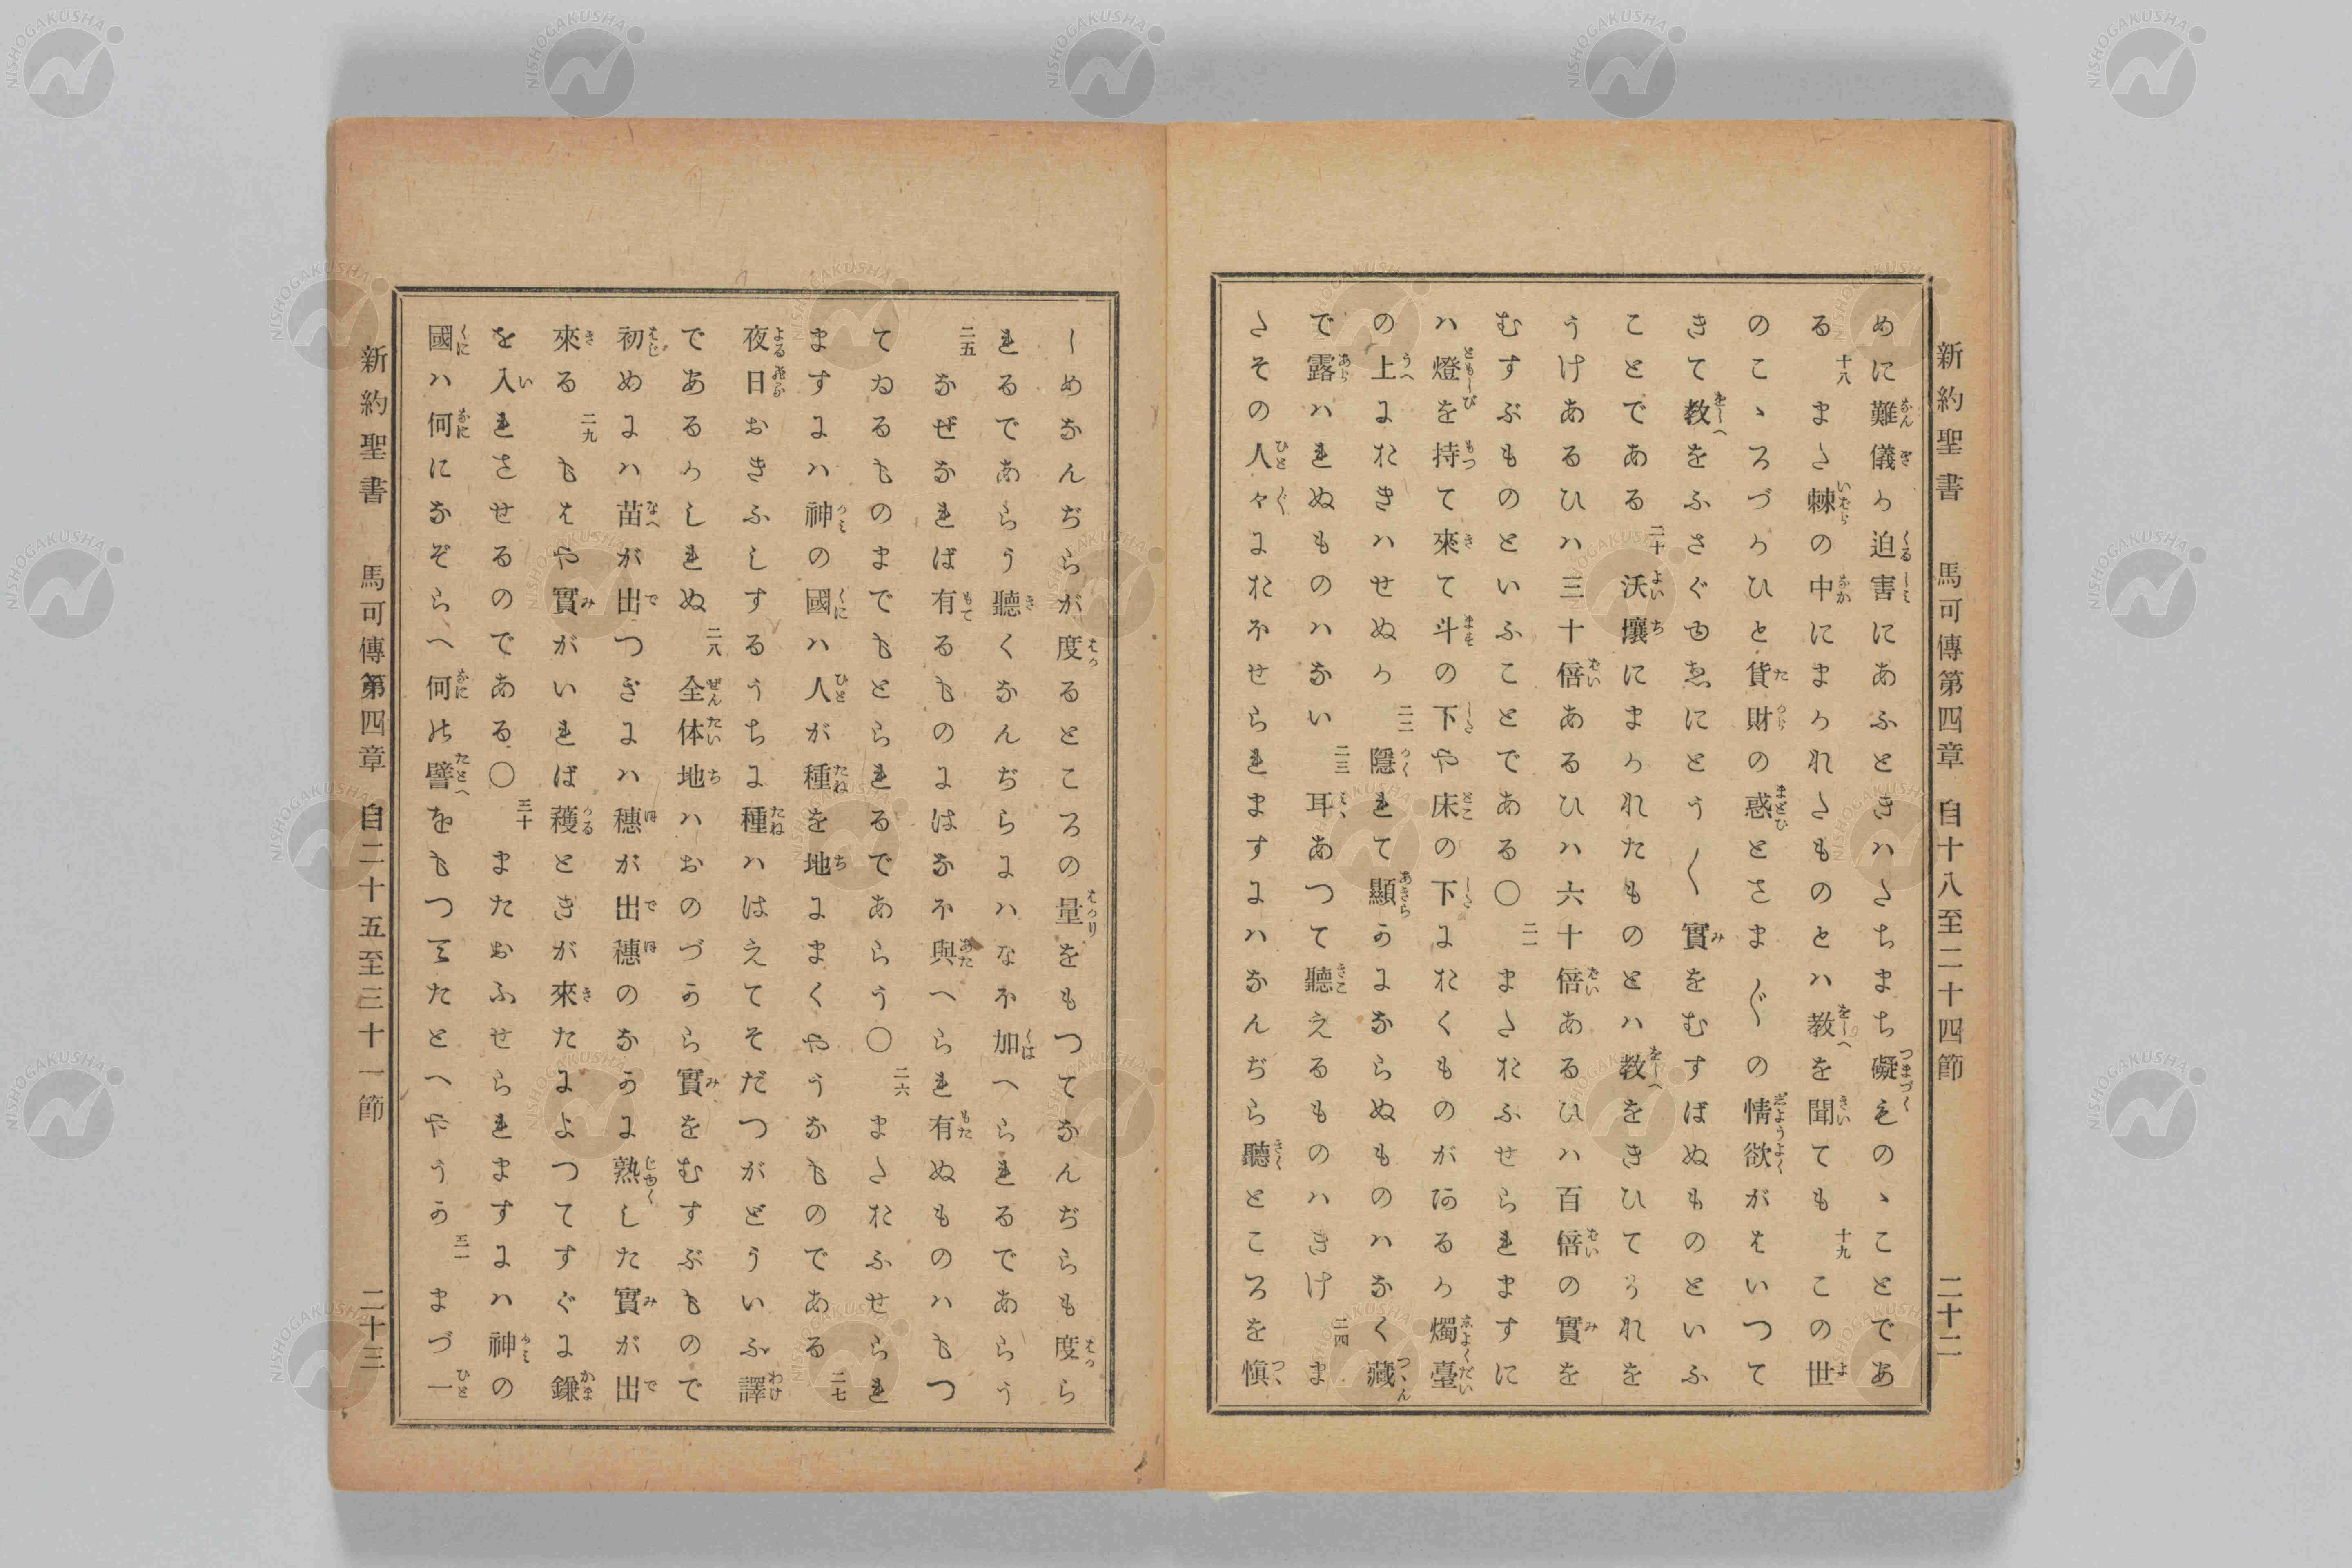 新約聖書 馬可傳第四章 自十八至二十四節 二十二
めに難儀か迫害にあふときハたちまち礙ものゝことであ
る 十八 また棘の中にまかれたものとハ教を聞ても 十九 この世
のこゝろづかひと貨財の惑とさま〴〵の情欲がはいつて
きて教をふさぐゆゑにとう〳〵實をむすばぬものといふ
ことである 二十 沃壤にまかれたものとハ教をきひてかれを
うけあるひハ三十倍あるひハ六十倍あるひハ百倍の實を
むすぶものといふことである〇 二一 またおふせられますに
ハ燈を持て來て斗の下や床の下におくものがあるか燭臺
の上におきハせぬか 二二 隱れて顯かにならぬものハなく藏
で露ハれぬものハない 二三 耳あつて聽えるものハきけ 二四 ま
たその人々におほせられますにハなんぢら聽ところを愼
しめなんぢらが度るところの量をもつてなんぢらも度ら
れるであらう聽くなんぢらにハなほ加へられるであらう
二五 なぜなれば有るものにはなほ與へられ有ぬものハもつ
てゐるものまでもとられるであらう〇 二六 またおふせられ
ますにハ神の國ハ人が種を地にまくやうなものである 二七
夜日おきふしするうちに種ハはえてそだつがどういふ譯
であるかしれぬ 二八 全体地ハおのづから實をむすぶもので
初めにハ苗が出つぎにハ穗が出穗のなかに熟した實が出
來る 二九 もはや實がいれば穫ときが來たによつてすぐに鎌
を入れさせるのである〇 三十 またおふせられますにハ神の
國ハ何になぞらへ何の譬をもつてたとへやうか 三一 まづ一
新約聖書 馬可傳第四章 自二十五至三十一節 二十三
NISHOGAKUSHA